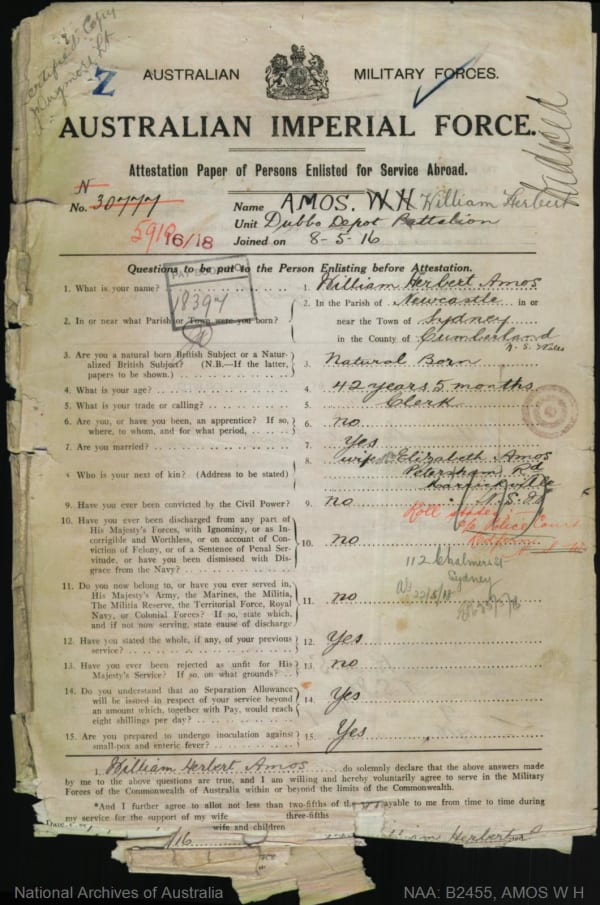 Certified Copy
Z
AUSTRALIAN MILITARY FORCES.
AUSTRALIAN IMPERIAL FORCE.
Attestation Paper of Persons Enlisted for Service Abroad.
N
No. 30777
5919
16/18
Name AMOS. W H William Herbert
Unit Dubbo Depot Battalion
Joined on 8-5-16
Questions to be put to the Person Enlisting before Attestation.
18397
1. What is your name? 1. William Herbert Amos
2. In or near what Parish or Town were you born? 2. In the Parish of Newcastle in or
near the Town of Sydney
in the County of Cumberland
N. S. Wales
3. Are you a natural born British Subject or a Natur-
alized British Subject? (N.B.—If the latter,
papers to be shown.) 3. Natural Born
4. What is your age? 4. 42 years 5 months
5. What is your trade or calling? 5. Clerk
6. Are you, or have you been, an apprentice? If so,
where, to whom, and for what period, 6. no
7. Are you married? 7. Yes
8. Who is your next of kin? (Address to be stated) 8. wife Elizabeth Amos
Petersham Rd
Marrickville
N.S.W
9. Have you ever been convicted by the Civil Power? 9. no
c/o Police Court
Redfern
10. Have you ever been discharged from any part of
His Majesty's Forces, with Ignominy, or as In-
corrigible and Worthless, or on account of Con-
viction of Felony, or of a Sentence of Penal Ser-
vitude, or have you been dismissed with Dis-
grace from the Navy? 10. no
112 Chalmers St
Sydney
22/5/18
11. Do you now belong to, or have you ever served in,
His Majesty's Army, the Marines, the Militia,
The Militia Reserve, the Territorial Force, Royal
Navy, or Colonial Forces? If so, state which,
and if not now serving, state cause of discharge 11. no
12. Have you stated the whole, if any, of your previous
service? 12. Yes
13. Have you ever been rejected as unfit for His
Majesty's Service? If so, on what grounds? 13. no
14. Do you understand that no Separation Allowance
will be issued in respect of your service beyond
an amount which, together with Pay, would reach
eight shillings per day? 14. Yes
15. Are you prepared to undergo inoculation against
small-pox and enteric fever? 15. Yes
I, William Herbert Amos do solemnly declare that the above answers made
by me to the above questions are true, and I am willing and hereby voluntarily agree to serve in the Military
Forces of the Commonwealth of Australia within or beyond the limits of the Commonwealth.
*And I further agree to allot not less than two-fifths of the payable to me from time to time during
three-fifths
my service for the support of my wife
wife and children
Date
/16
William Herbert
National Archives of Australia NAA: B2455, AMOS W H